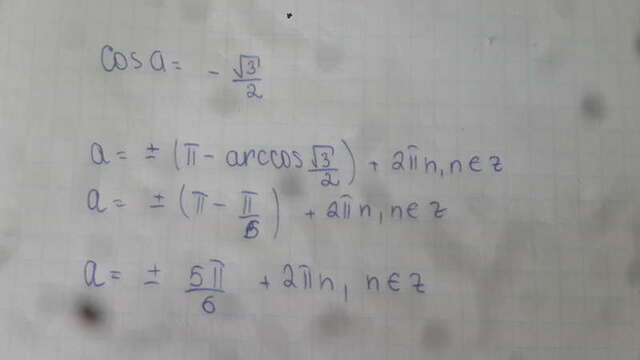 cos a = - √3/2
a = ± (π - arccos √3/2) + 2πn, n∈z
a = ± (π - π/6) + 2πn, n∈z
a = ± 5π/6 + 2πn, n∈z